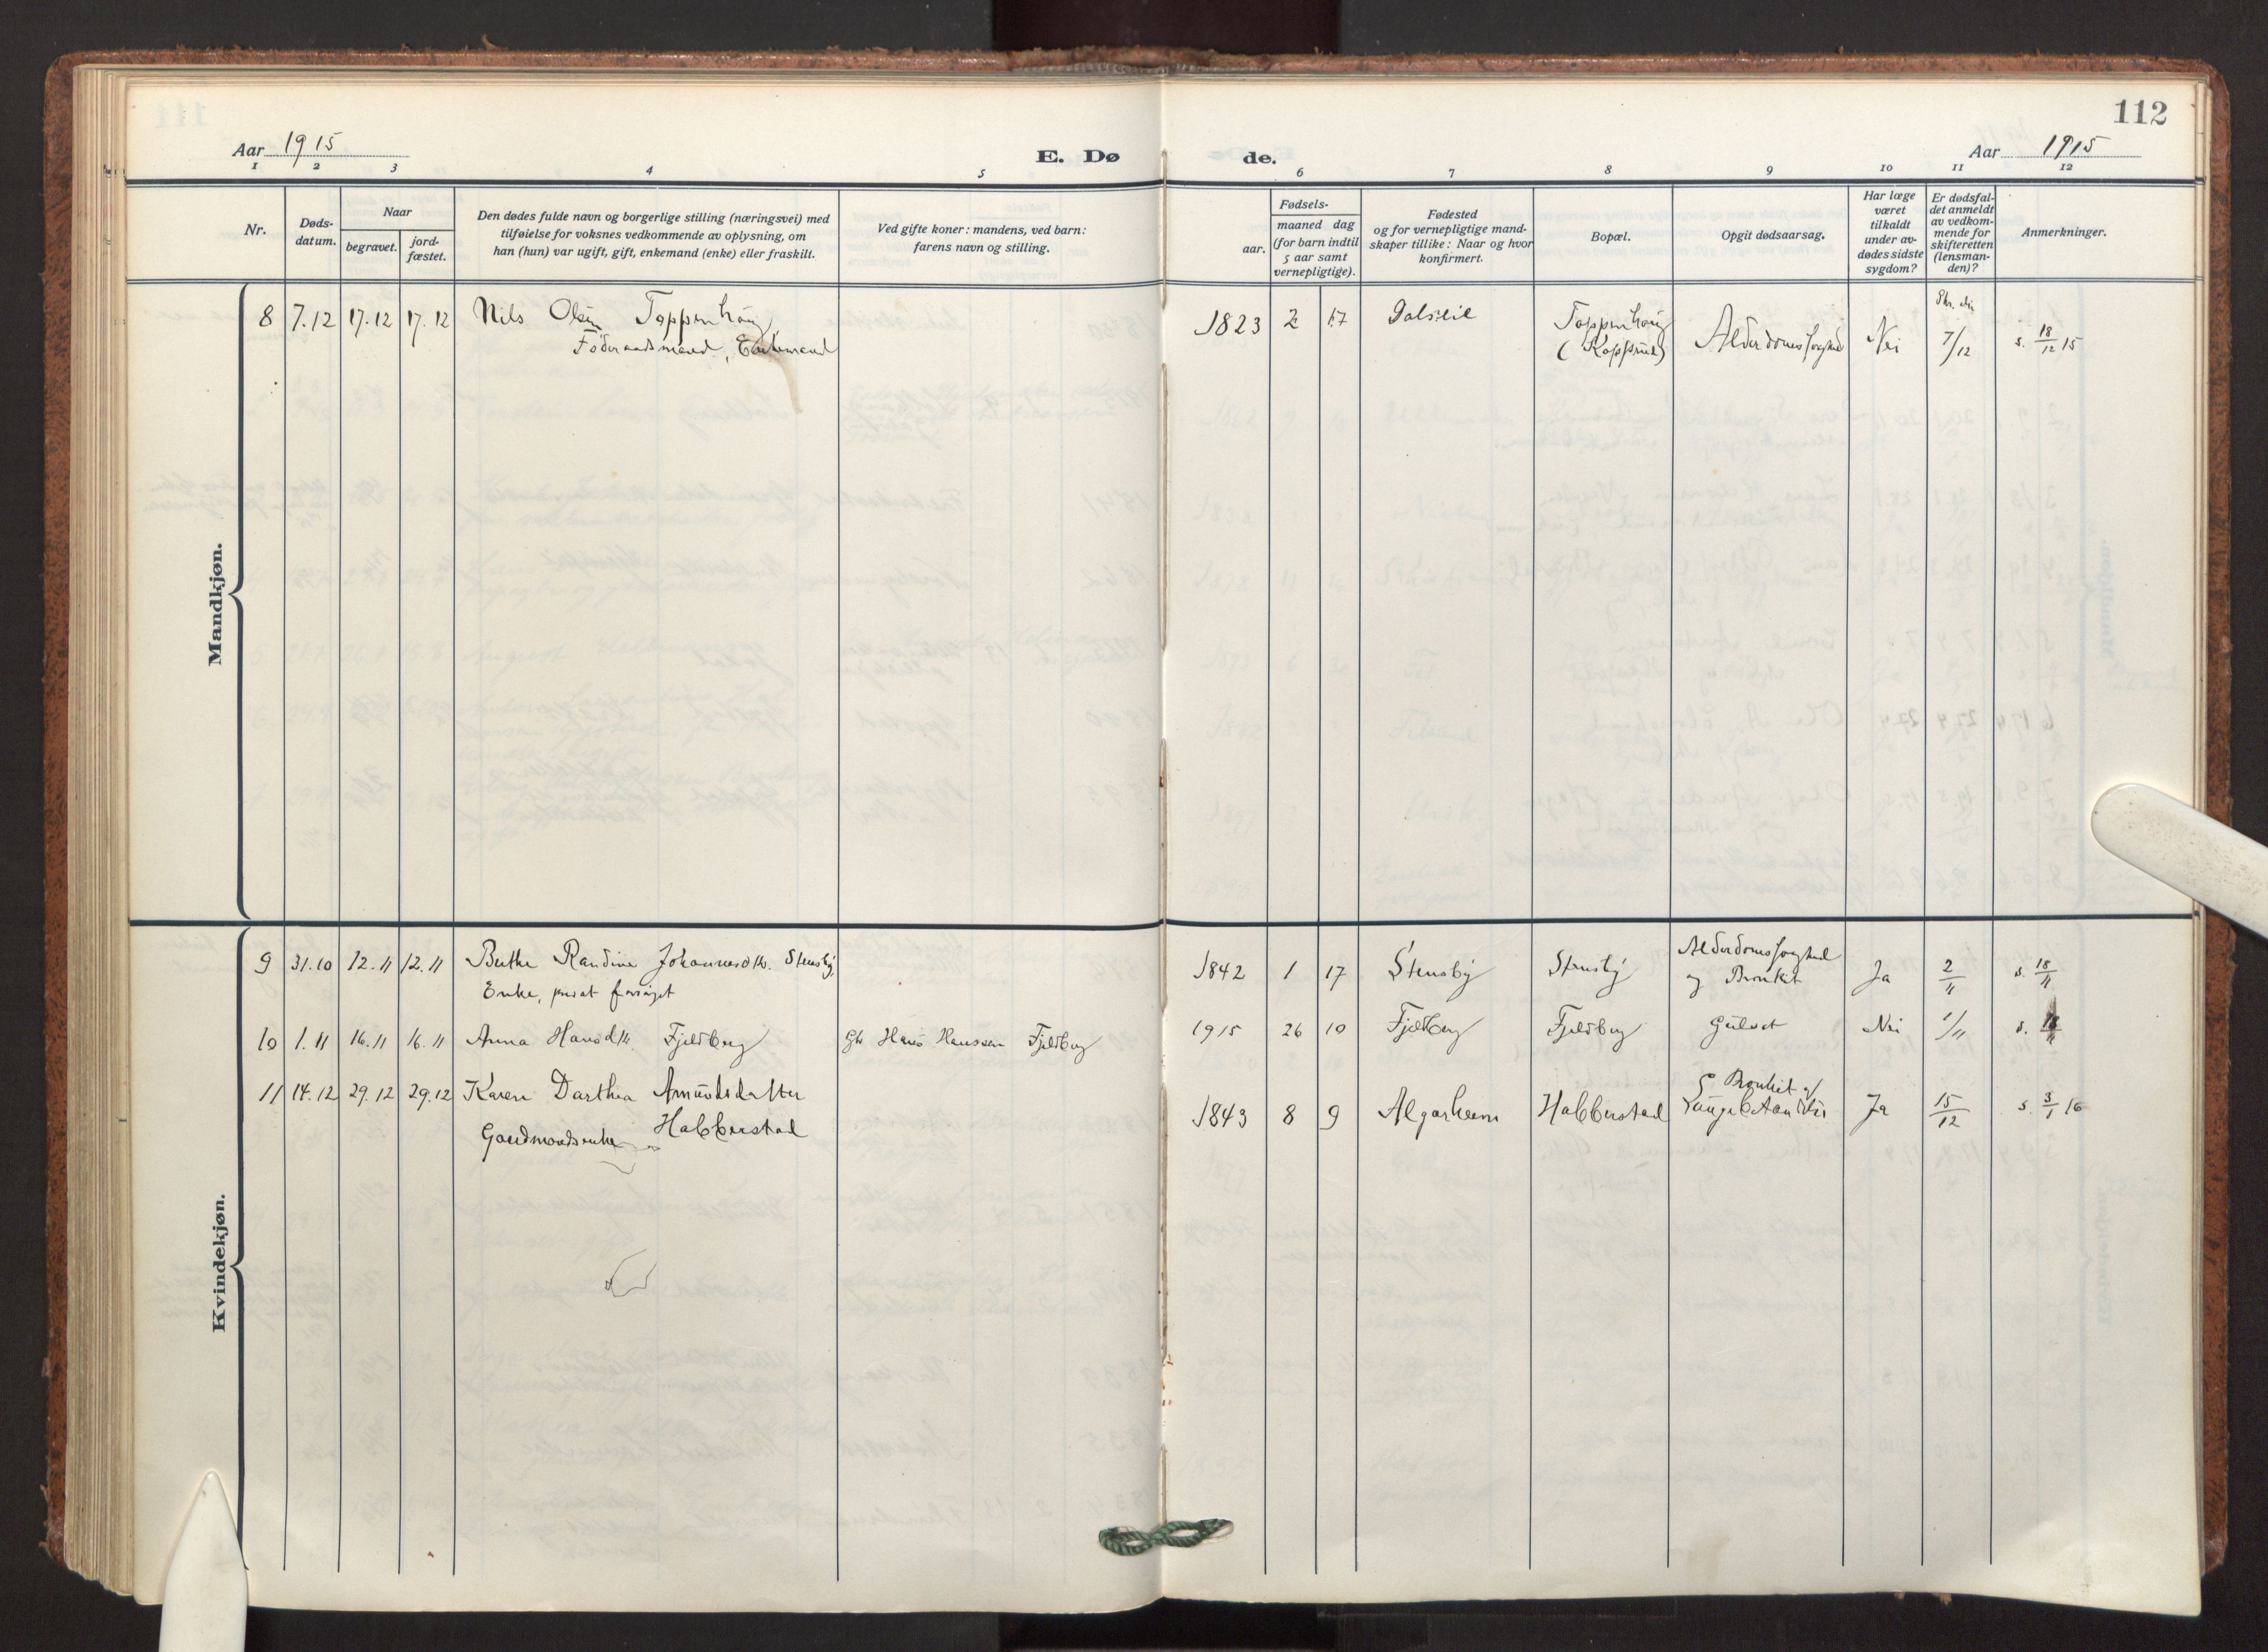 112
Aar 1915
E. Dø de.
Aar 1915
1 2 3 4 5 6 7 8 9 10 11 12
Nr.
Døds-
datum.
Naar
begravet.
jord-
fæstet.
Den dødes fulde navn og borgerlige stilling (næringsvei) med
tilføielse for voksnes vedkommende av oplysning, om
han (hun) var ugift, gift, enkemand (enke) eller fraskilt.
Ved gifte koner: mandens, ved barn:
farens navn og stilling.
Fødsels-
aar.
maaned dag
(for barn indtil
5 aar samt
vernepligtige).
Fødested
og for vernepligtige mand-
skaper tillike: Naar og hvor
konfirmert.
Bopæl.
Opgit dødsaarsag.
Har læge
været
tilkaldt
under av-
dødes sidste
sygdom?
Er dødsfal-
det anmeldt
av vedkom-
mende for
skifteretten
(lensman-
den)?
Anmerkninger.
Mandkjøn.
8 7.12 17.12 17.12 Nils Olsen Toppenhaug 1823 2 17 Toppenhaug Alderdomssvaghed Nei 7/12 s. 18/12 15
Føderaadsmand, Enkemand
Kvindekjøn.
9 31.10 12.11 12.11 Berthe Randine Johannesdtr. Stensby 1842 1 17 Stensby Stensby Alderdomssvaghed
Enke, privat forsørget og Bronkit Ja 2/11 s. 18/11
10 1.11 16.11 16.11 Anna Hansdtr. Fjeldberg Hans Hanssen Fjeldberg 1915 26 10 Fjeldberg Fjeldberg Gulsot Nei 1/11 s. 18/11
11 14.12 29.12 29.12 Karen Dorthea Amundsdatter 1843 8 9 Algarheim Habberstad Bronkit Ja 15/12 s. 3/1 16
Gaardmandsenke Habberstad